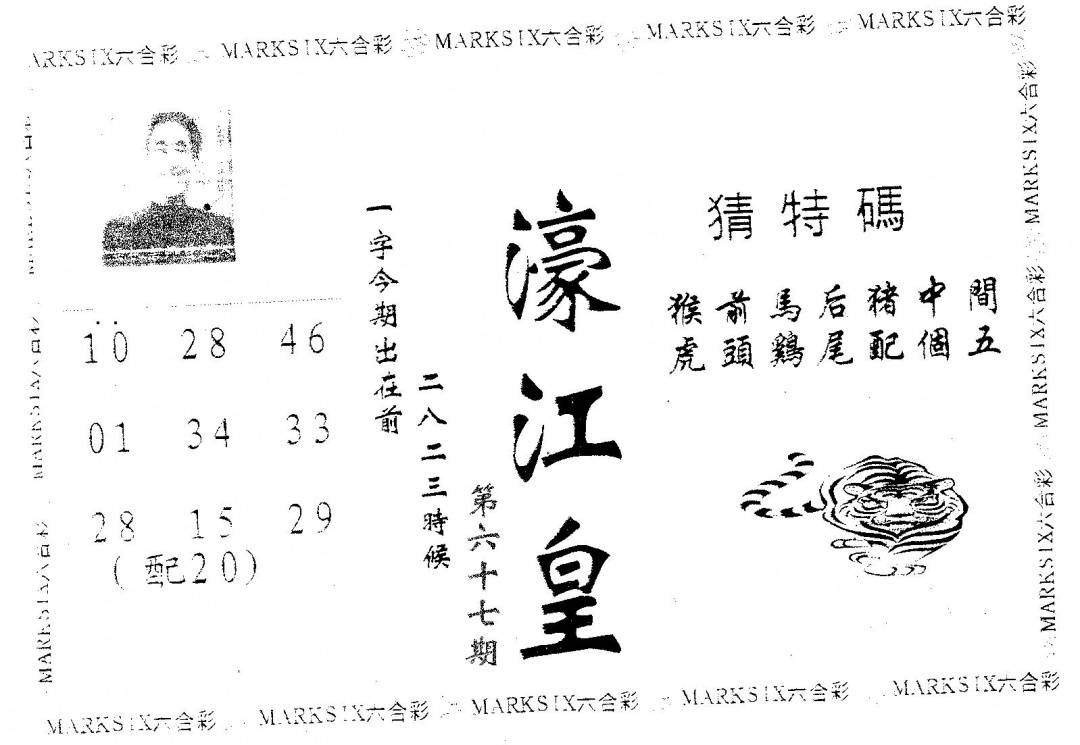 MARKSIX六合彩 MARKSIX六合彩 MARKSIX六合彩 MARKSIX六合彩 MARKSIX六合彩
猜特碼
猴前馬后猪中間
虎頭鷄尾配個五
濠江皇
第六十七期
一字今期出在前
二八二三時候
10 28 46
01 34 33
28 15 29
(配20)
MARKSIX六合彩
MARKSIX六合彩
MARKSIX六合彩
MARKSIX六合彩
MARKSIX六合彩
MARKSIX六合 MARKSIX六合彩 MARKSIX六合彩 MARKSIX六合彩 MARKSIX六合彩